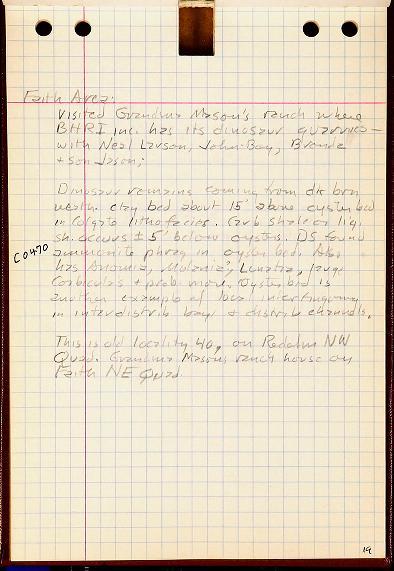 Faith Area:
Visited Grandma Mason's ranch where
BHRI inc. has its dinosaur quarries –
with Neal Larson, John-Boy, Brenda
+ son Jason;
Dinosaur remains coming from dk brn
weath. clay bed about 15' above oyster bed
in Colgate lithofacies. Carb shale or lig.
sh. occurs ± 5' below oysters. DS found
C0470
ammonite phrag in oyster bed. Also
has Anomia, Melania?, Lunatia, large
Corbiculas + prob. more. Oyster bed is
another example of local interfingering
in interdistrib bays & distrib channels.
This is old locality 40, on Redelm NW
Quad. Grandma Masons ranch house on
Faith NE Quad.
19